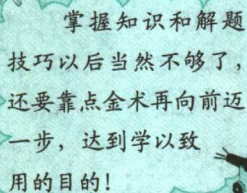 掌握知识和解题
技巧以后当然不够了，
还要靠点金术再向前迈
一步，达到学以致
用的目的！